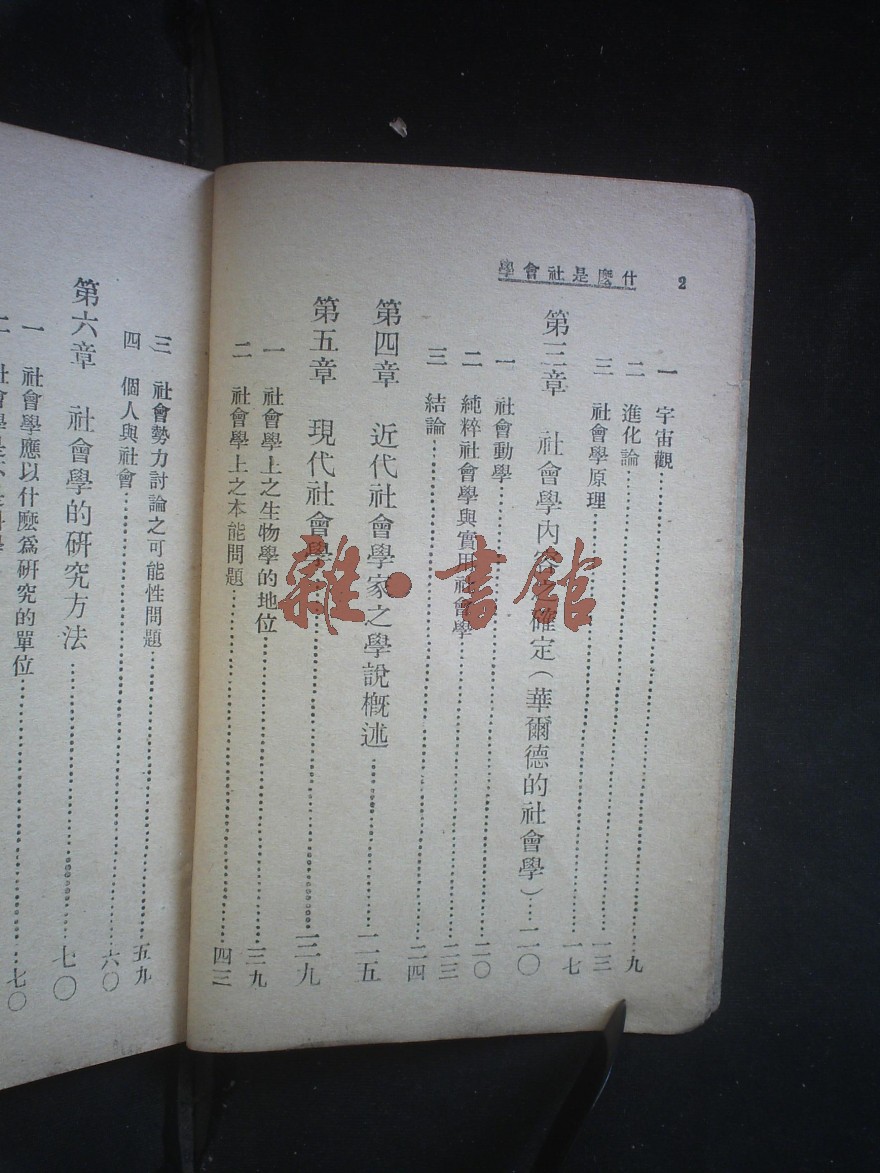 2 什麼是社會學
一 宇宙觀……九
二 進化論……一三
三 社會學原理……一七
第三章 社會學內容確定(華爾德的社會學)……二〇
一 社會動學……二〇
二 純粹社會學與實用社會學……二三
三 結論……二四
第四章 近代社會學家之學說概述……二五
第五章 現代社會學……三九
一 社會學上之生物學的地位……三九
二 社會學上之本能問題……四三
三 社會勢力討論之可能性問題……五九
四 個人與社會……六〇
第六章 社會學的研究方法……七〇
一 社會學應以什麼爲研究的單位……七〇
二 社會學是
雜·書館